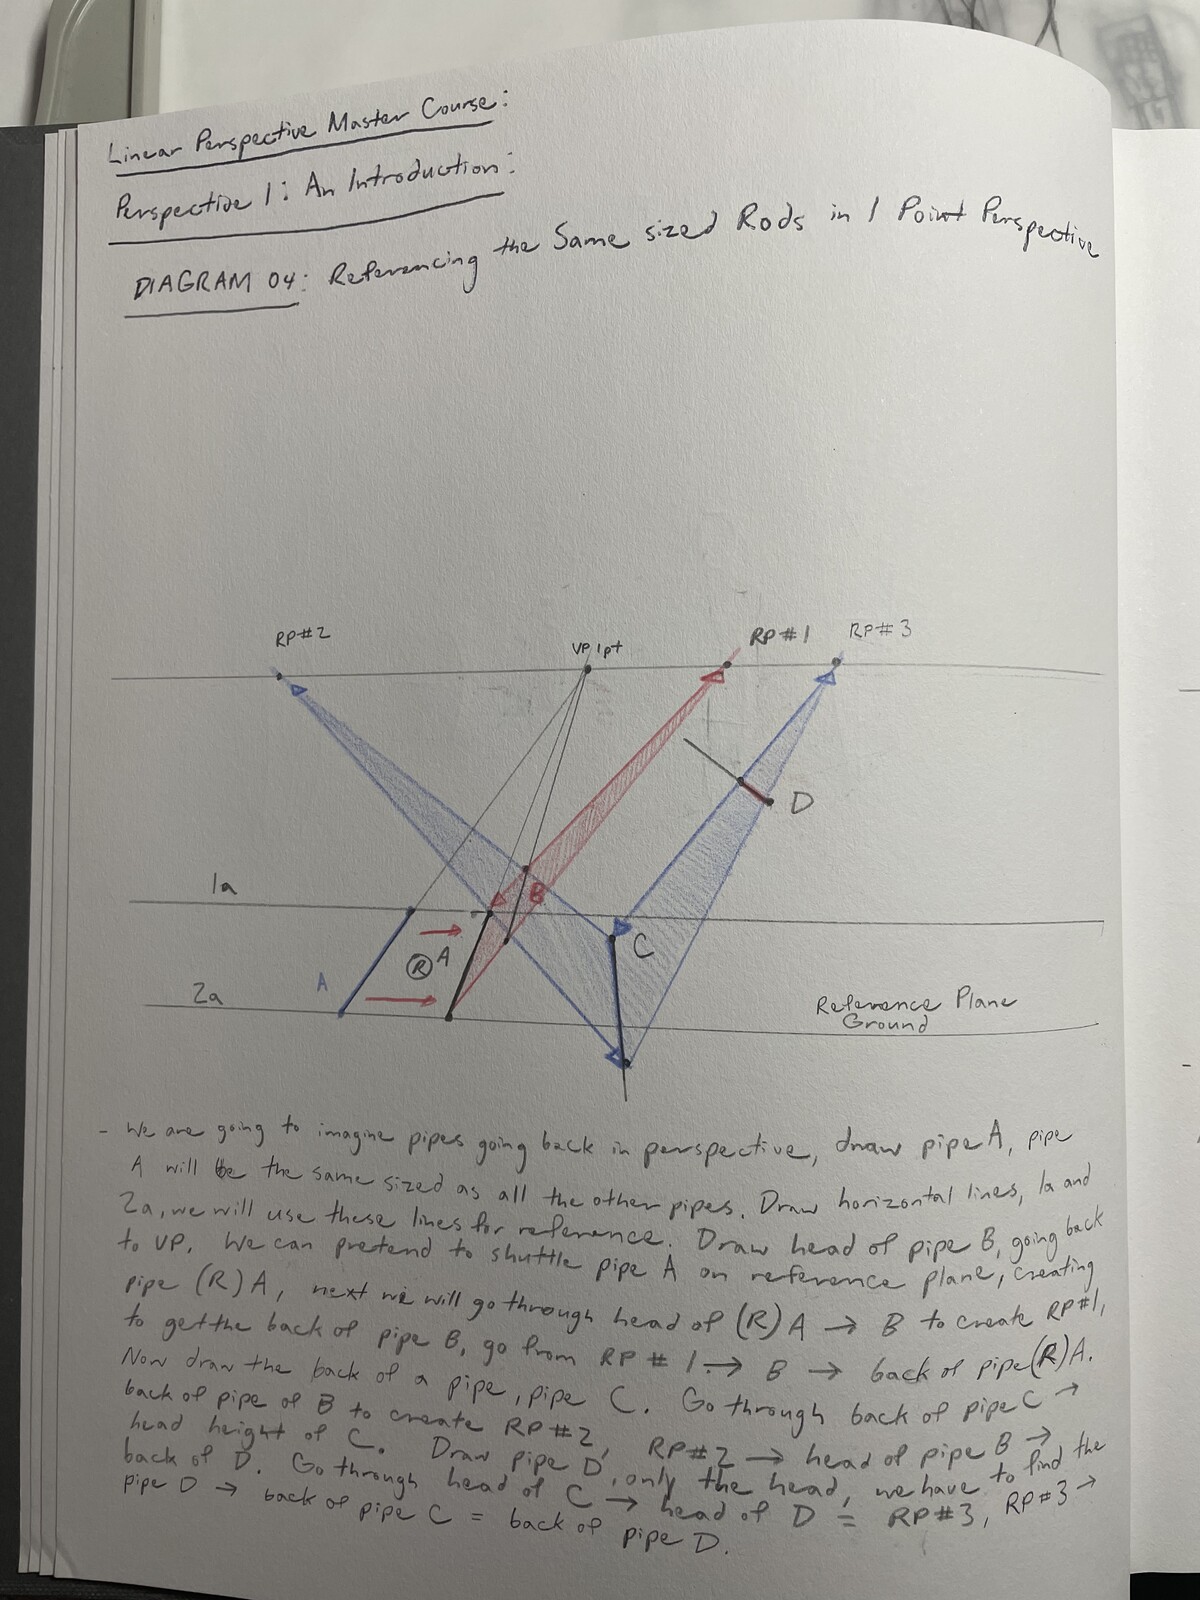 Linear Perspective Master Course:
Perspective 1: An Introduction:
DIAGRAM 04: Referencing the Same sized Rods in 1 Point Perspective
RP#2
VP 1pt
RP#1
RP#3
D
1a
B
C
A
Ⓡ A
2a
Reference Plane
Ground
- We are going to imagine pipes going back in perspective, draw pipe A, pipe
A will be the same sized as all the other pipes. Draw horizontal lines, 1a and
2a, we will use these lines for reference. Draw head of pipe B, going back
to VP. We can pretend to shuttle pipe A on reference plane, creating
pipe (R) A, next we will go through head of (R) A → B to create RP#1,
to get the back of pipe B, go from RP # 1 → B → back of pipe (R) A.
Now draw the back of a pipe, pipe C. Go through back of pipe C →
back of pipe of B to create RP#2, RP#2 → head of pipe B →
head height of C. Draw pipe D, only the head, we have to find the
back of D. Go through head of C → head of D = RP#3, RP#3 →
pipe D → back of pipe C = back of pipe D.